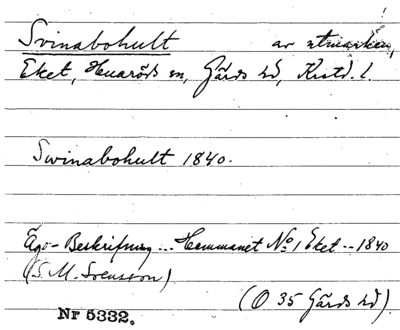 Svinabohult av utmarken,
Eket, Huaröds sn, Gärds hd, Krstd. l.
Swinabohult 1840.
Ägo-Beskrifning... Hemmanet No 1 Eket -- 1840
(S. M. Svensson)
(O 35 Gärds hd).
Nr 5332.